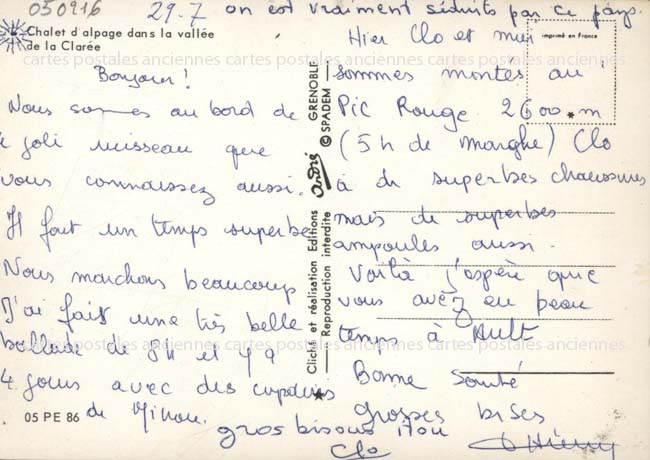 050916
29-7 on est vraiment séduits par ce pays.
Chalet d'alpage dans la vallée
de la Clarée
imprimé en France
Bonjour!
Nous sommes au bord de
joli ruisseau que
vous connaissez aussi.
Il fait un temps superbe
Nous marchons beaucoup
J'ai fait une très belle
ballade de 8H et y a
4 jours avec des copains
de Ninou.
gros bisous
Clo
05 PE 86
Cliché et réalisation Editions André GRENOBLE
Reproduction interdite © SPADEM
Hier Clo et moi
sommes montés au
Pic Rouge 2600 m
(5h de marche) Clo
a de superbes chaussures
mais de superbes
ampoules aussi.
Voilà j'espère que
vous avez eu beau
temps à Ault
Bonne santé
grosses bises
cartes postales anciennes cartes postales anciennes cartes postales anciennes